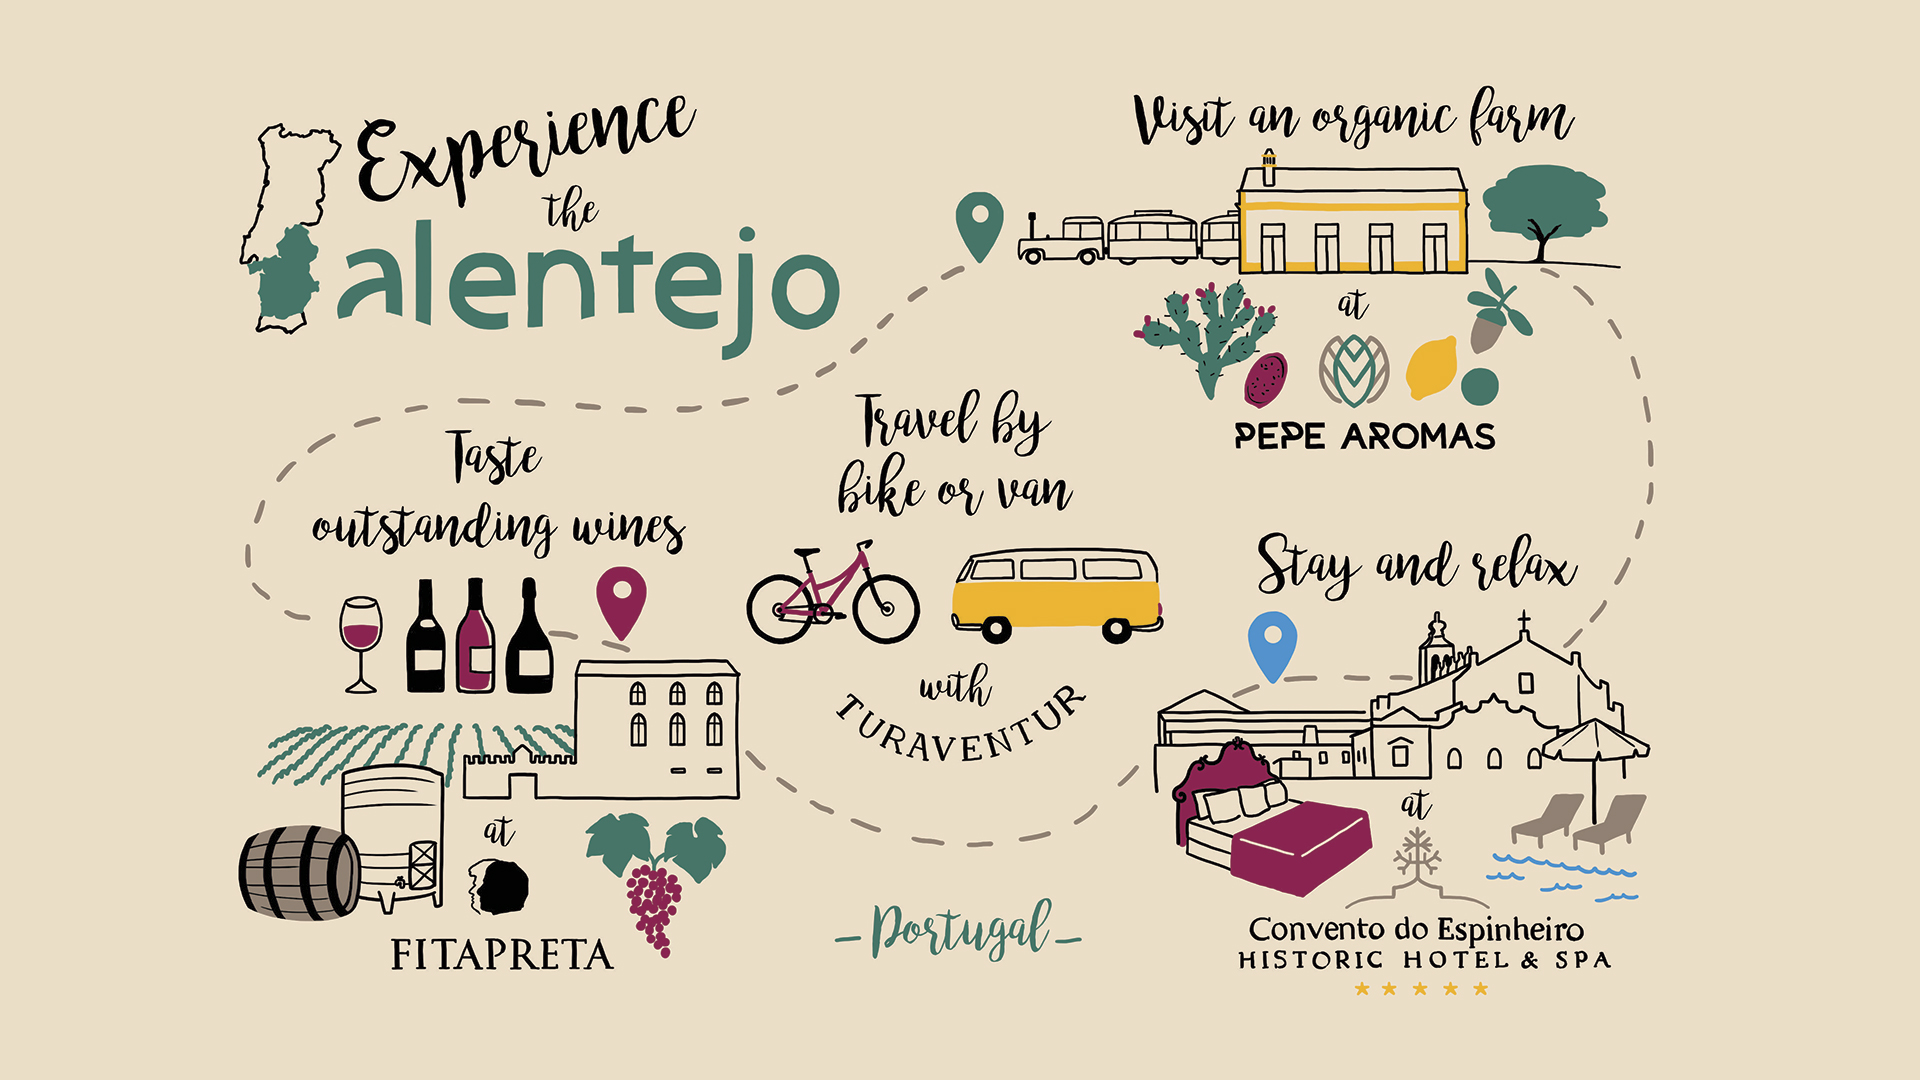 Experience
the
alentejo
Visit an organic farm
at
PEPE AROMAS
Taste
outstanding wines
at
FITAPRETA
Travel by
bike or van
with
TURAVENTUR
Stay and relax
at
Convento do Espinheiro
HISTORIC HOTEL & SPA
- Portugal -